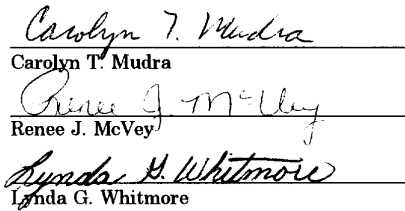 Carolyn T. Mudra
Carolyn T. Mudra
Renee J. McVey
Renee J. McVey
Lynda G. Whitmore
Lynda G. Whitmore